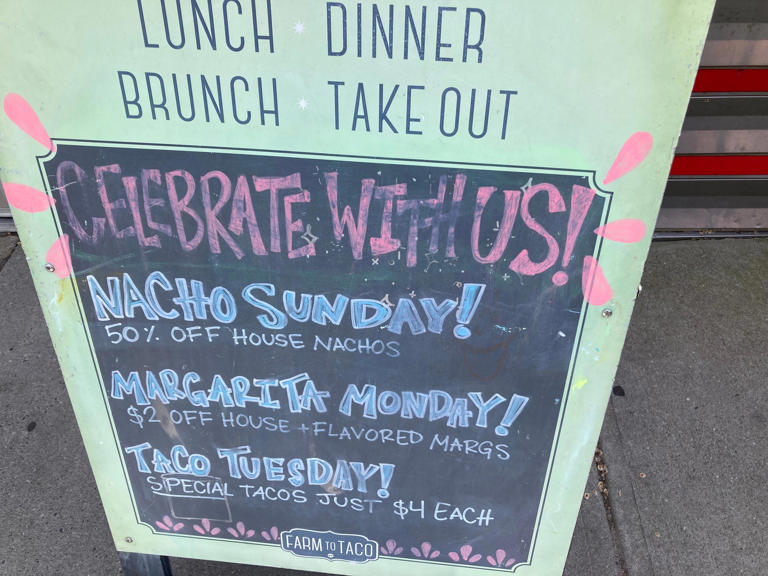 LUNCH DINNER
BRUNCH TAKE OUT
CELEBRATE WITH US!
NACHO SUNDAY!
50% OFF HOUSE NACHOS
MARGARITA MONDAY!
$2 OFF HOUSE + FLAVORED MARGS
TACO TUESDAY!
SPECIAL TACOS JUST $4 EACH
FARM TO TACO